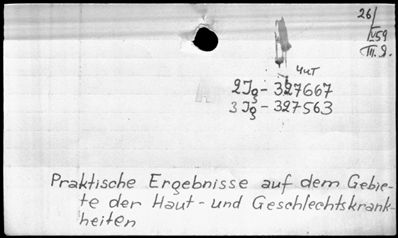 26/
VI59
III. 2.
чит
2 Jg - 327667
3 Jg - 327563
Praktische Ergebnisse auf dem Gebie-
te der Haut- und Geschlechtskrank-
heiten